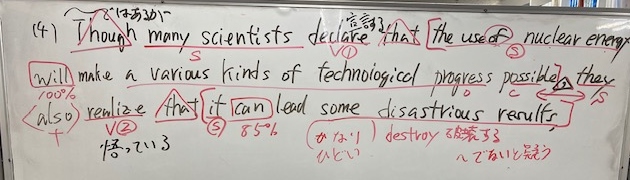 〜ではあるが 宣言する
(4) Though many scientists declare that [the use of nuclear energy
S V① S
will make a various kinds of technological progress possible], they
100% O C S
<also> realize that [it can lead some disastrious results]
+ V② S 85% (かなりひどい) destroy 破壊する
悟っている